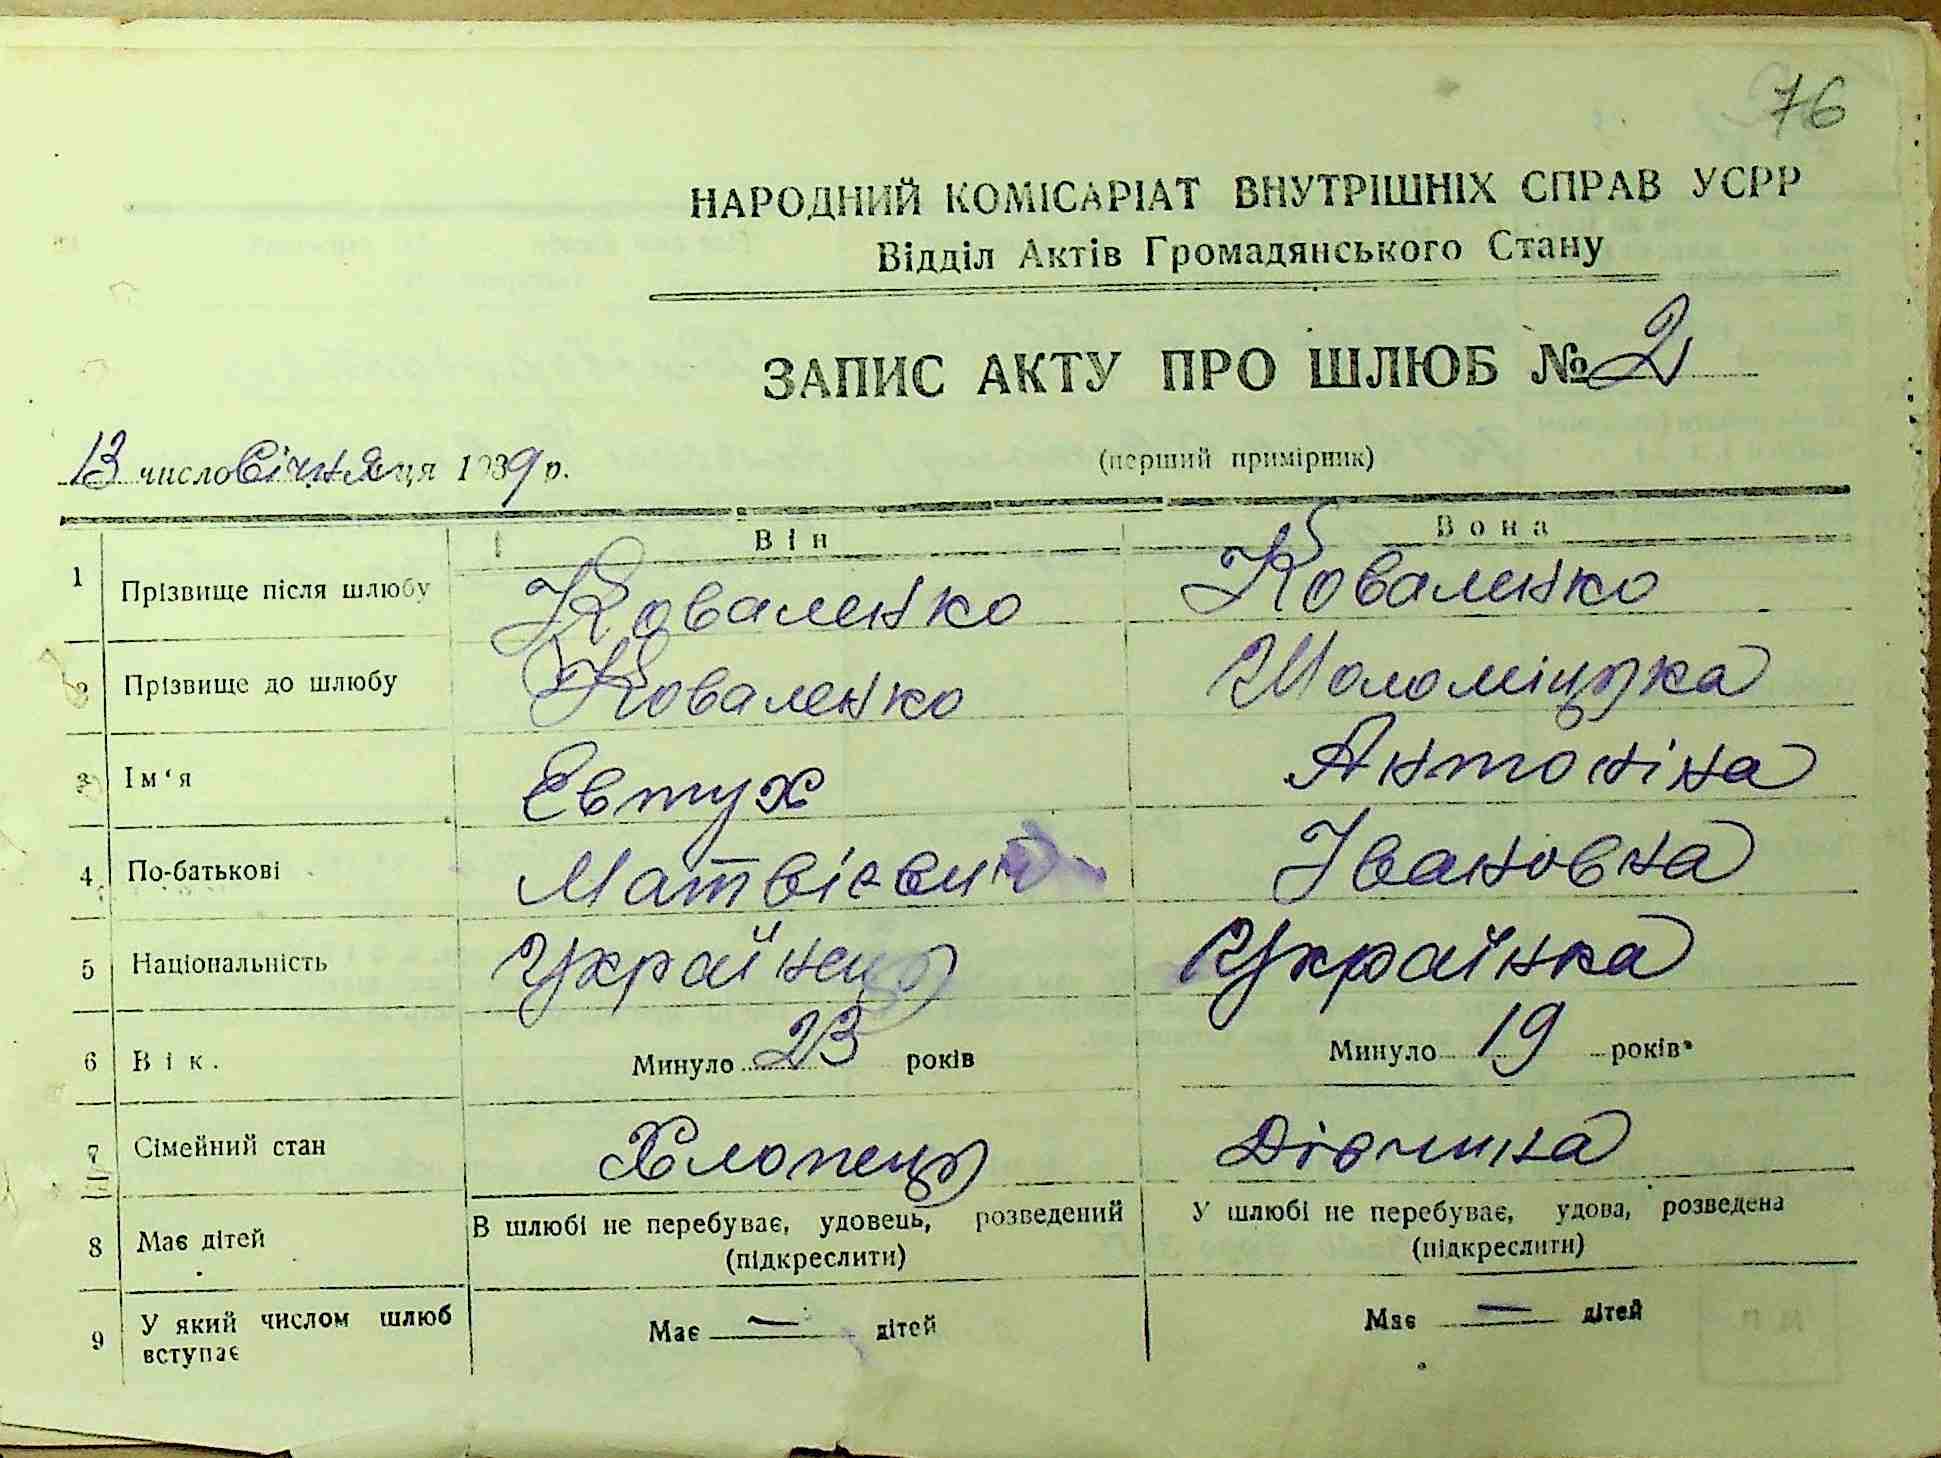 76
НАРОДНИЙ КОМІСАРІАТ ВНУТРІШНІХ СПРАВ УСРР
Відділ Актів Громадянського Стану
ЗАПИС АКТУ ПРО ШЛЮБ № 2
13 число Січня ця 1939 р. (перший примірник)
Він Вона
1 Прізвище після шлюбу Коваленко Коваленко
2 Прізвище до шлюбу Коваленко Шоломіцька
3 Ім'я Евтух Антоніна
4 По-батькові Матвієвич Івановна
5 Національність Українець Українка
6 Вік. Минуло 23 років Минуло 19 років
7 Сімейний стан Хлопець Дівчина
8 Має дітей В шлюбі не перебуває, удовець, розведений У шлюбі не перебуває, удова, розведена
(підкреслити) (підкреслити)
9 У який числом шлюб вступає Має — дітей Має — дітей